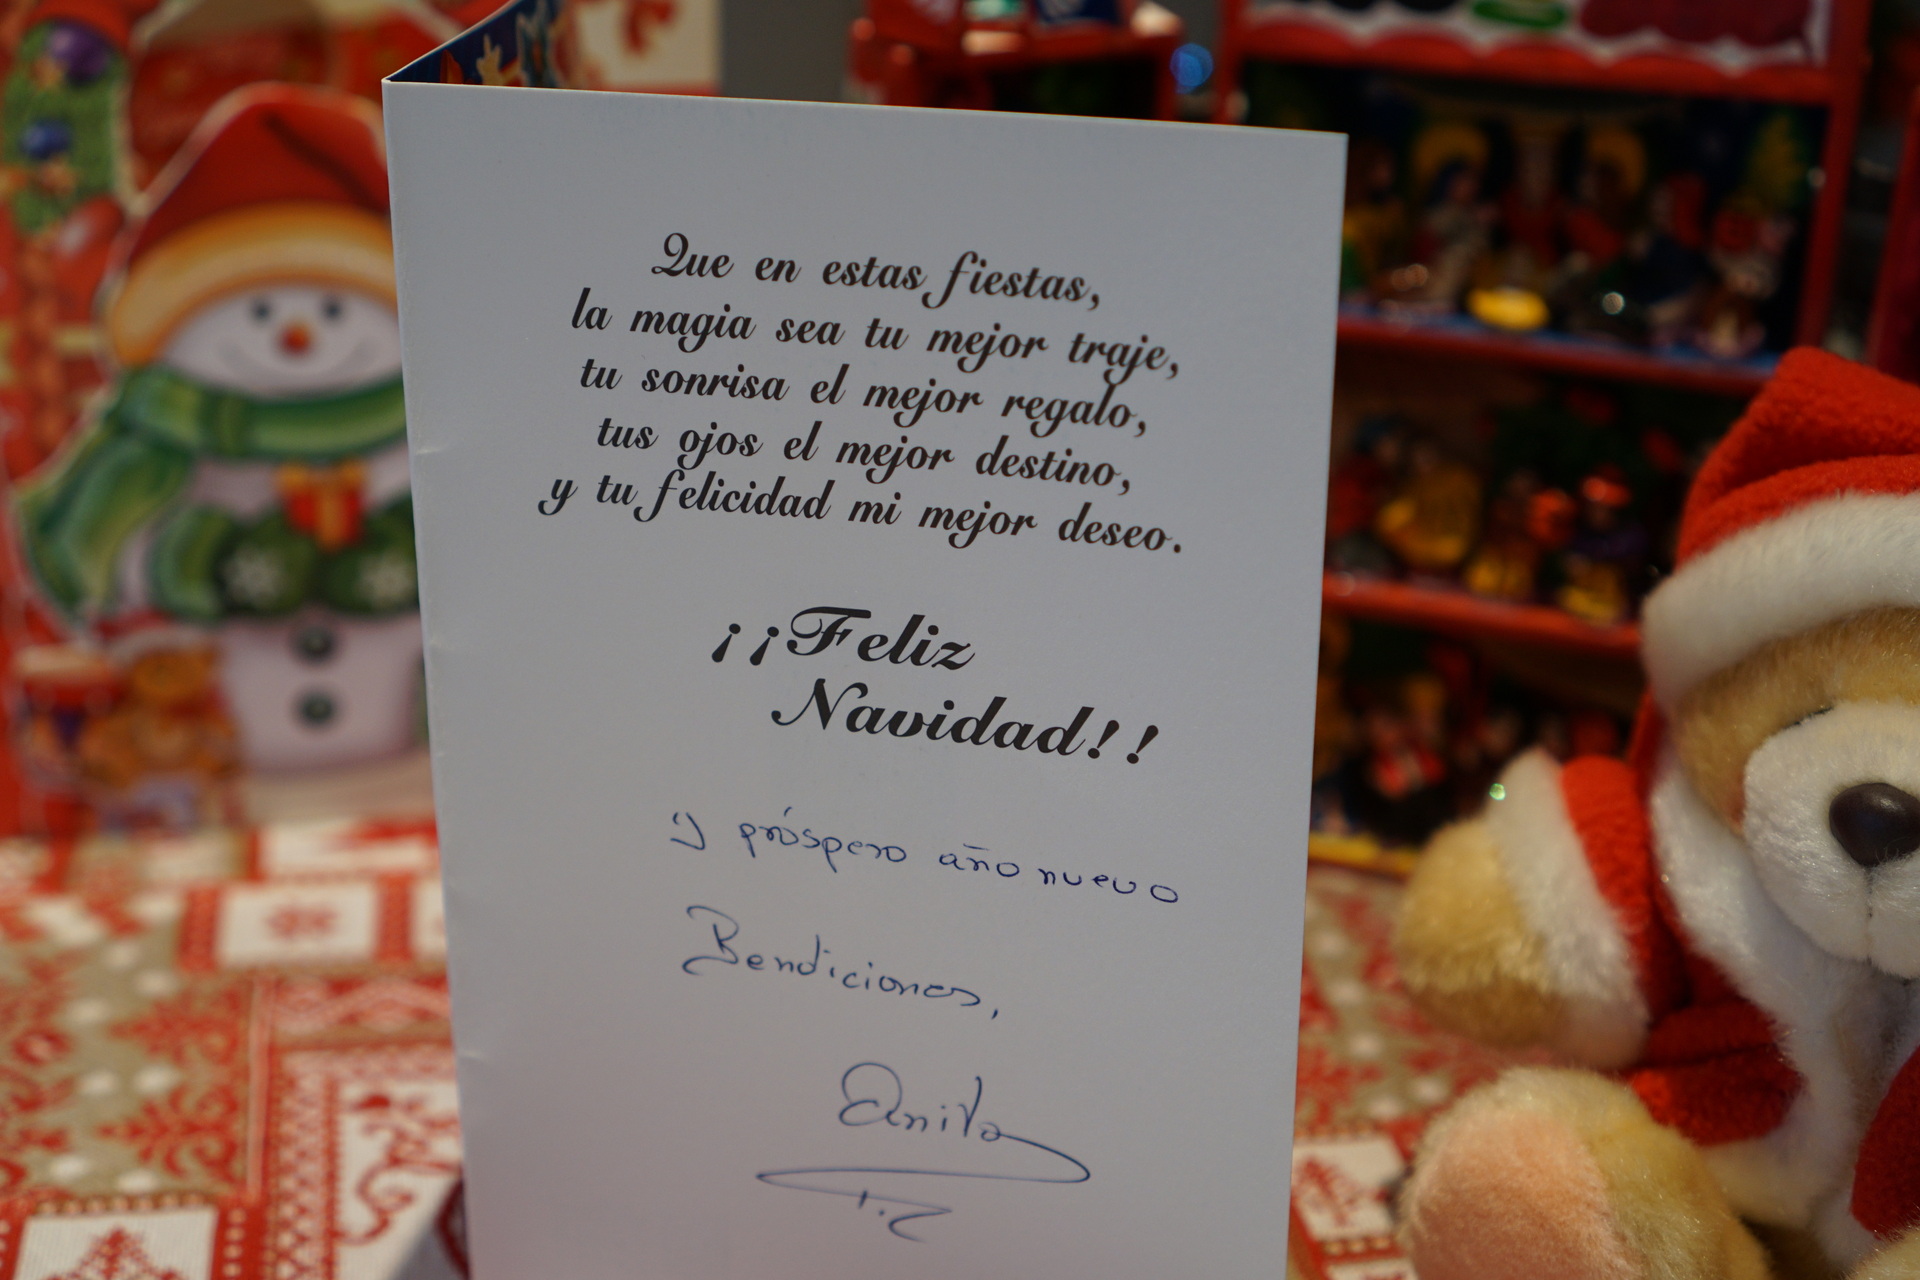 Que en estas fiestas,
la magia sea tu mejor traje,
tu sonrisa el mejor regalo,
tus ojos el mejor destino,
y tu felicidad mi mejor deseo.
¡¡Feliz
Navidad!!
y próspero año nuevo
Bendiciones,
Anita